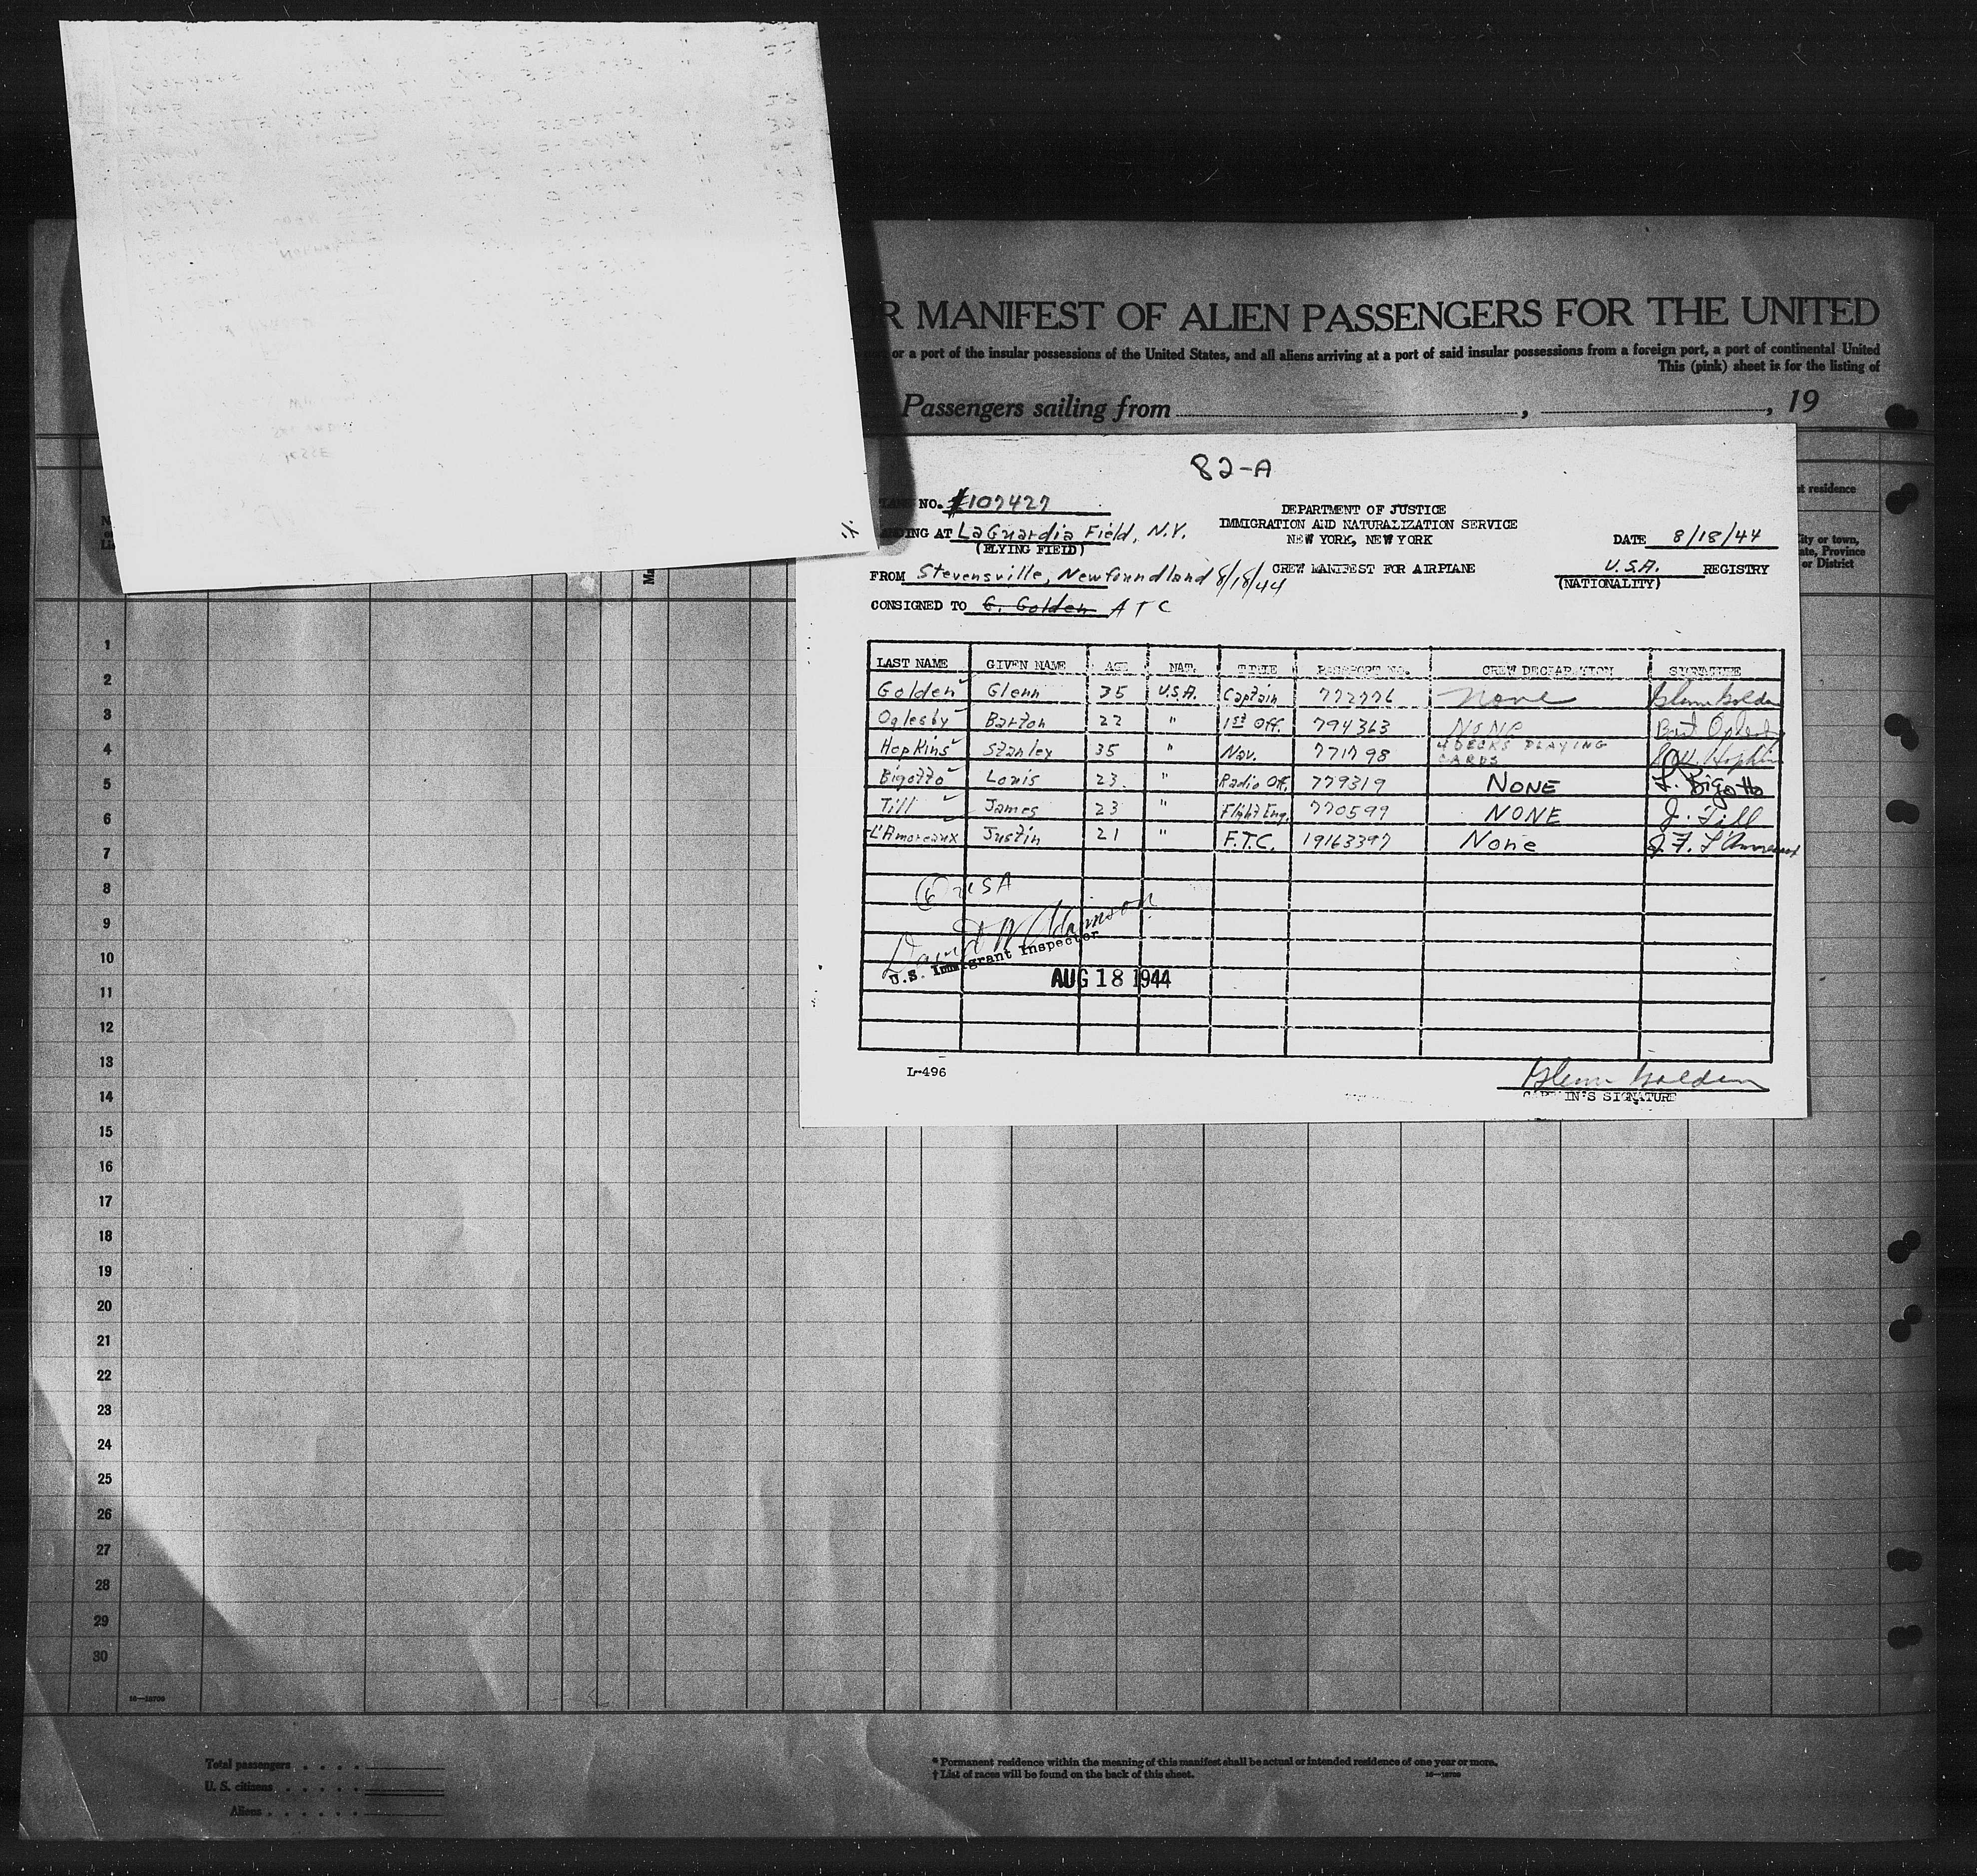 R MANIFEST OF ALIEN PASSENGERS FOR THE UNITED
or a port of the insular possessions of the United States, and all aliens arriving at a port of said insular possessions from a foreign port, a port of continental United
This (pink) sheet is for the listing of
Passengers sailing from , , 19
82-A
NO. #107427
DEPARTMENT OF JUSTICE
IMMIGRATION AND NATURALIZATION SERVICE
NEW YORK, NEW YORK
DING AT LaGuardia Field, N.Y.
(FLYING FIELD)
DATE 8/18/44
FROM Stevensville, Newfoundland 8/18/44
CREW MANIFEST FOR AIRPLANE
U.S.A. REGISTRY
(NATIONALITY)
CONSIGNED TO G. Golden ATC
LAST NAME GIVEN NAME AGE NAT. TITLE PASSPORT NO. CREW DECLARATION SIGNATURE
Golden Glenn 35 U.S.A. Captain 772776 None Glenn Golden
Oglesby Barton 22 " 1st Off. 794363 None Bart Oglesby
Hopkins Stanley 35 " Nav. 771798 4 DECKS PLAYING CARDS Hopkins
Bigotto Louis 23. " Radio Off. 779319 NONE L. Bigotto
Till James 23 " Flight Eng. 770599 NONE J. Till
L'Amoreaux Justin 21 " F.T.C. 19163397 None J. F. L'Amoreaux
6 USA
U.S. Immigrant Inspector
AUG 18 1944
L-496
Glenn Golden
CAPTAIN'S SIGNATURE
t residence
City or town,
ate, Province
or District
1
2
3
4
5
6
7
8
9
10
11
12
13
14
15
16
17
18
19
20
21
22
23
24
25
26
27
28
29
30
16—18708
Total passengers . . . .
U. S. citizens . . . . .
Aliens . . . . . .
* Permanent residence within the meaning of this manifest shall be actual or intended residence of one year or more.
† List of races will be found on the back of this sheet.
16—18708